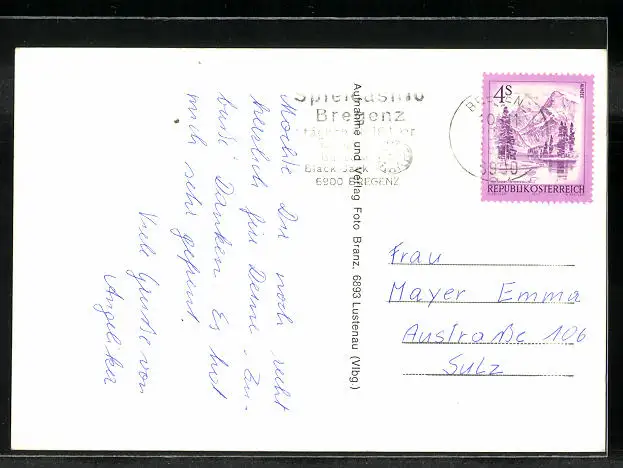 Möchte Dir noch recht
herzlich für Deine
Danken. Es hat
mich sehr gefreut.
Viele Grüße von
Angelika
Aufnahme und Verlag Foto Branz, 6893 Lustenau (Vlbg.)
Spielcasino
Bregenz
täglich
Black Jack
6900 BREGENZ
4 S
REPUBLIK ÖSTERREICH
Frau
Mayer Emma
Austraße 106
Sulz